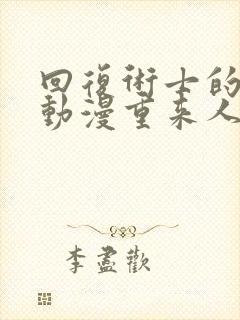 回復術士的
動漫重来人
李盡歡